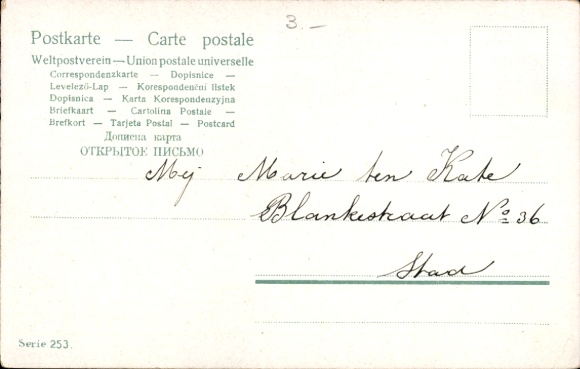 3.–
Postkarte — Carte postale
Weltpostverein — Union postale universelle
Correspondenzkarte — Dopisnice —
Levelező-Lap — Korespondenční lístek
Dopisnica — Karta Korespondenzyjna
Briefkaart — Cartolina Postale —
Brefkort — Tarjeta Postal — Postcard
Дописна карта
ОТКРЫТОЕ ПИСЬМО
Mej Marie ten Kate
Blankestraat No 36
Stad
Serie 253.